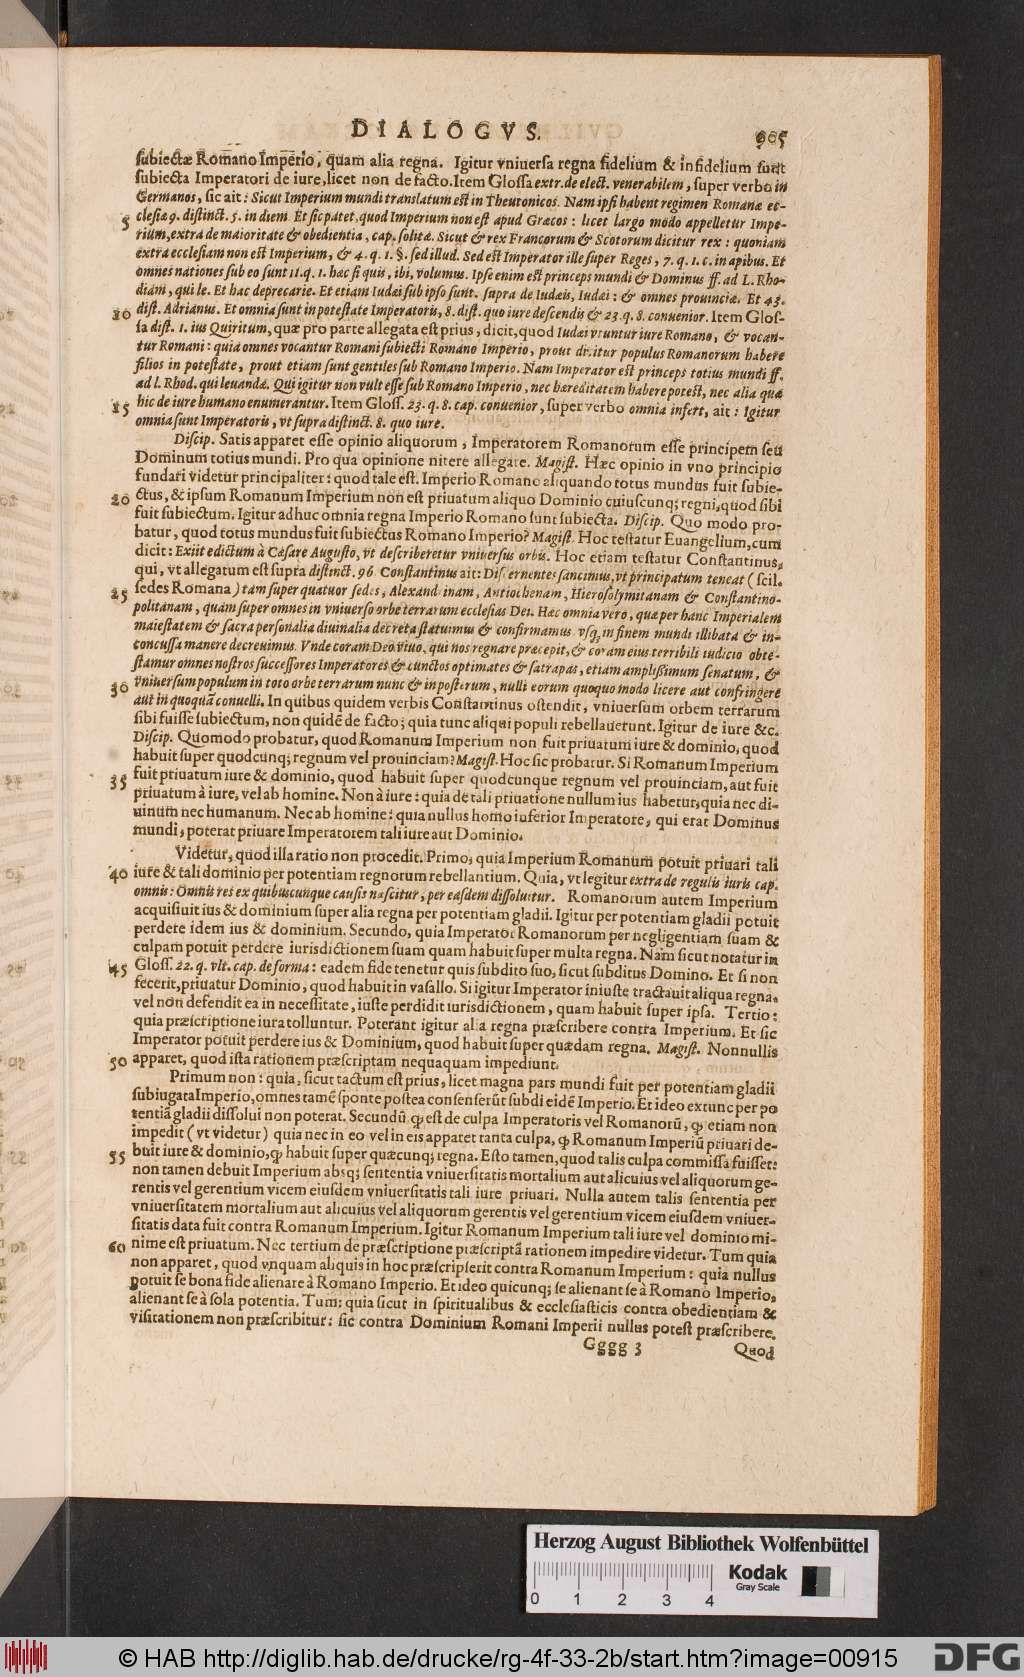 DIALOGVS. 905
subiectæ Romano Imperio, quam alia regna. Igitur vniuersa regna fidelium & infidelium sunt
subiecta Imperatori de iure, licet non de facto. Item Glossa extr. de elect. venerabilem, super verbo in
Germanos, sic ait: Sicut Imperium mundi translatum est in Theutonicos. Nam ipsi habent regimen Romanæ ec-
5 clesiæ 9. distinct. 5. in diem. Et sic patet, quod Imperium non est apud Græcos: licet largo modo appelletur Impe-
rium, extra de maioritate & obedientia, cap. solitæ. Sicut & rex Francorum & Scotorum dicitur rex: quoniam
extra ecclesiam non est Imperium, & 4. q. 1. §. sed illud. Sed est Imperator ille super Reges, 7. q. 1. c. in apibus. Et
omnes nationes sub eo sunt 11. q. 1. hac si quis, ibi, volumus. Ipse enim est princeps mundi & Dominus ff. ad L. Rho-
diam, qui le. Et hac deprecarie. Et etiam Iudæi sub ipso sunt. supra de Iudæis, Iudæi: & omnes prouinciæ. Et 43.
10 dist. Adrianus. Et omnia sunt in potestate Imperatoris, 8. dist. quo iure descendis & 23. q. 8. conuenior. Item Glos-
sa dist. 1. ius Quiritum, quæ pro parte allegata est prius, dicit, quod Iudæi vtuntur iure Romano, & vocan-
tur Romani: quia omnes vocantur Romani subiecti Romano Imperio, prout dicitur populus Romanorum habere
filios in potestate, prout etiam sunt gentiles sub Romano Imperio. Nam Imperator est princeps totius mundi ff.
ad l. Rhod. qui leuandæ. Qui igitur non vult esse sub Romano Imperio, nec hæreditatem habere potest, nec alia quæ
15 hic de iure humano enumerantur. Item Gloss. 23. q. 8. cap. conuenior, super verbo omnia infert, ait: Igitur
omnia sunt Imperatoris, vt supra distinct. 8. quo iure.
Discip. Satis apparet esse opinio aliquorum, Imperatorem Romanorum esse principem seu
Dominum totius mundi. Pro qua opinione nitere allegare. Magist. Hæc opinio in vno principio
fundari videtur principaliter: quod tale est. Imperio Romano aliquando totus mundus fuit subie-
20 ctus, & ipsum Romanum Imperium non est priuatum aliquo Dominio cuiuscunq; regni, quod sibi
fuit subiectum. Igitur adhuc omnia regna Imperio Romano sunt subiecta. Discip. Quo modo pro-
batur, quod totus mundus fuit subiectus Romano Imperio? Magist. Hoc testatur Euangelium, cum
dicit: Exiit edictum à Cæsare Augusto, vt describeretur vniuersus orbis. Hoc etiam testatur Constantinus,
qui, vt allegatum est supra distinct. 96. Constantinus ait: Discernentes sancimus, vt principatum teneat (scil.
25 sedes Romana) tam super quatuor sedes, Alexandrinam, Antiochenam, Hierosolymitanam & Constantino-
politanam, quàm super omnes in vniuerso orbe terrarum ecclesias Dei. Hæc omnia vero, quæ per hanc Imperialem
maiestatem & sacra personalia diuinalia decreta statuimus & confirmamus vsq; in finem mundi illibata & in-
concussa manere decreuimus. Vnde coram Deo viuo, qui nos regnare præcepit, & coram eius terribili iudicio obte-
stamur omnes nostros successores Imperatores & cunctos optimates & satrapas, etiam amplissimum senatum, &
30 vniuersum populum in toto orbe terrarum nunc & in posterum, nulli eorum quoquo modo licere aut confringere
aut in quoquã conuelli. In quibus quidem verbis Constantinus ostendit, vniuersum orbem terrarum
sibi fuisse subiectum, non quidẽ de facto; quia tunc aliqui populi rebellauerunt. Igitur de iure &c.
Discip. Quomodo probatur, quod Romanum Imperium non fuit priuatum iure & dominio, quod
habuit super quodcunq; regnum vel prouinciam? Magist. Hoc sic probatur. Si Romanum Imperium
35 fuit priuatum iure & dominio, quod habuit super quodcunque regnum vel prouinciam, aut fuit
priuatum à iure, vel ab homine. Non à iure: quia de tali priuatione nullum ius habetur, quia nec di-
uinum nec humanum. Nec ab homine: quia nullus homo inferior Imperatore, qui erat Dominus
mundi, poterat priuare Imperatorem tali iure aut Dominio.
Videtur, quod illa ratio non procedit. Primo, quia Imperium Romanum potuit priuari tali
40 iure & tali dominio per potentiam regnorum rebellantium. Quia, vt legitur extra de regulis iuris cap.
omnis: Omnis res ex quibuscunque causis nascitur, per easdem dissoluitur. Romanorum autem Imperium
acquisiuit ius & dominium super alia regna per potentiam gladii. Igitur per potentiam gladii potuit
perdere idem ius & dominium. Secundo, quia Imperator Romanorum per negligentiam suam &
culpam potuit perdere iurisdictionem suam quam habuit super multa regna. Nam sicut notatur in
45 Gloss. 22. q. vlt. cap. de forma: eadem fide tenetur quis subdito suo, sicut subditus Domino. Et si non
fecerit, priuatur Dominio, quod habuit in vasallo. Si igitur Imperator iniuste tractauit aliqua regna,
vel non defendit ea in necessitate, iuste perdidit iurisdictionem, quam habuit super ipsa. Tertio:
quia præscriptione iura tolluntur. Poterant igitur alia regna præscribere contra Imperium. Et sic
Imperator potuit perdere ius & Dominium, quod habuit super quædam regna. Magist. Nonnullis
50 apparet, quod ista rationem præscriptam nequaquam impediunt.
Primum non: quia, sicut tactum est prius, licet magna pars mundi fuit per potentiam gladii
subiugata Imperio, omnes tamẽ sponte postea consenserũt subdi eidẽ Imperio. Et ideo extunc per po
tentiã gladii dissolui non poterat. Secundũ ꝙ est de culpa Imperatoris vel Romanorũ, ꝙ etiam non
impedit (vt videtur) quia nec in eo vel in eis apparet tanta culpa, ꝙ Romanum Imperiũ priuari de-
55 buit iure & dominio, ꝙ habuit super quæcunq; regna. Esto tamen, quod talis culpa commissa fuisset:
non tamen debuit Imperium absq; sententia vniuersitatis mortalium aut alicuius vel aliquorum ge-
rentis vel gerentium vicem eiusdem vniuersitatis tali iure priuari. Nulla autem talis sententia per
vniuersitatem mortalium aut alicuius vel aliquorum gerentis vel gerentium vicem eiusdem vniuer-
sitatis data fuit contra Romanum Imperium. Igitur Romanum Imperium tali iure vel dominio mi-
60 nime est priuatum. Nec tertium de præscriptione præscriptã rationem impedire videtur. Tum quia
non apparet, quod vnquam aliquis in hoc præscripserit contra Romanum Imperium: quia nullus
potuit se bona fide alienare à Romano Imperio. Et ideo quicunq; se alienant se à Romano Imperio,
alienant se à sola potentia. Tum: quia sicut in spiritualibus & ecclesiasticis contra obedientiam &
visitationem non præscribitur: sic contra Dominium Romani Imperii nullus potest præscribere.
Gggg 3 Quod
Herzog August Bibliothek Wolfenbüttel
0 1 2 3 4
Kodak
Gray Scale
© HAB http://diglib.hab.de/drucke/rg-4f-33-2b/start.htm?image=00915
DFG